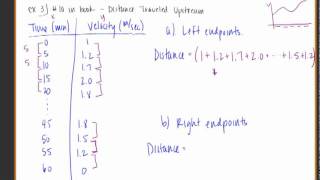 ex 3) #10 in book - Distance Traveled Upstream
x y
Time (min) Velocity (m/sec)
0 1
5 1.2
10 1.7
15 2.0
20 1.8
45 1.8
50 1.5
55 1.2
60 0
5
5
a) Left endpoints.
Distance = (1+1.2+1.7+2.0+ ... +1.5+1.2)
b) Right endpoints
Distance =